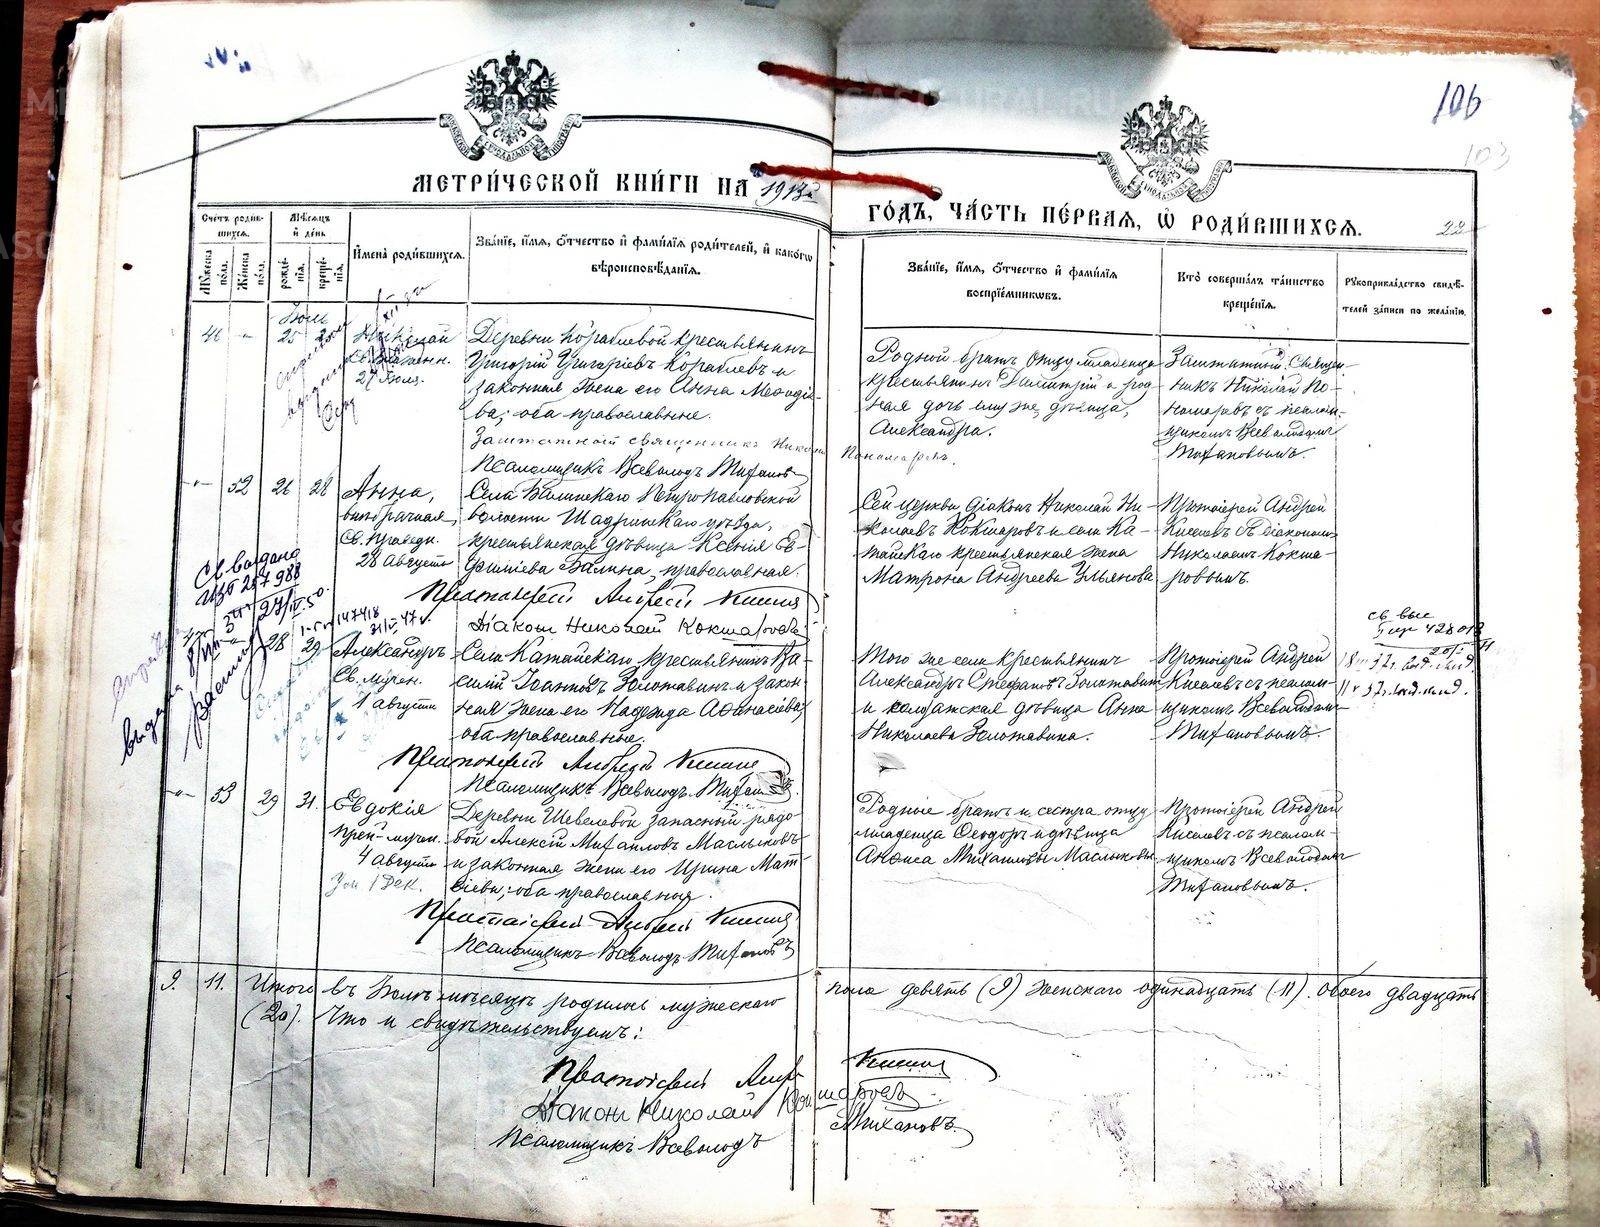 106
103
МЕТРИ́ЧЕСКОЙ КНИ́ГИ НА 1913й
ГО́ДЪ, ЧА́СТЬ ПЕ́РВАЯ, Ѡ РОДИ́ВШИХСЯ.
22
Сче́тъ роди́в-
шихся.
Мѣ́сяцъ
и҆ де́нь
Мꙋ́жеска по́ла.
Же́нска по́ла.
рожде́-
нїя.
креще́-
нїя.
И҆мена̀ роди́вшихся.
Зва́нїе, и҆́мя, ѻ҆́тчество и҆ фами́лїя роди́телей, и҆ како́гѡ
вѣроисповѣ́данїя.
Зва́нїе, и҆́мя, ѻ҆́тчество и҆ фами́лїя
воспрїе́мникѡвъ.
Кто̀ соверша́лъ та́инство
креще́нїя.
Рꙋкоприкла́дство свидѣ́-
телей за́писи по жела́нїю.
Іюль
25
Николай
27 Іюля.
Деревни Кораблевой крестьянинъ
Григорій Григоріевъ Кораблевъ и
законная жена его Анна
ва; оба православные.
Заштатный священникъ Николай Пономаревъ.
Псаломщикъ Всеволодъ Тихановъ
Родной братъ отцу младенца
крестьянинъ Димитрій и род-
ная дочь ему же, дѣвица,
Александра.
Заштатный Священ-
никъ Николай По-
номаревъ съ псалом-
щикомъ Всеволодомъ
Тихановымъ.
52 26 28
Анна,
внѣбрачная,
Св. Праведн.
28 Августа
Села Петропавловской
волости Шадринскаго уѣзда,
крестьянская дѣвица Ксенія Ев-
фиміева Балина, православная.
Протоіерей Андрей Киселевъ
Діаконъ Николай Кокшаровъ
Сей церкви діаконъ Николай Ни-
колаевъ Кокшаровъ и села Ка-
тайскаго крестьянская жена
Матрона Андреева Ульянова
Протоіерей Андрей
Киселевъ съ діакономъ
Николаемъ Кокша-
ровымъ.
28 29
Александръ
Св. мучен.
1 августа
Села Катайскаго крестьянинъ Ва-
силій Іоанновъ Золотавинъ и закон-
ная жена его Надежда Аѳанасіева;
оба православные.
Протоіерей Андрей Киселевъ
Псаломщикъ Всеволодъ Тихановъ
Того же села крестьянинъ
Александръ Стефановъ Золотавинъ
и солдатская дѣвица Анна
Николаева Золотавина.
Протоіерей Андрей
Киселевъ съ псалом-
щикомъ Всеволодомъ
Тихановымъ.
53 29 31.
Евдокія
Преп.-мучен.
4 августа
Деревни Шевелевой запасный рядо-
вой Алексѣй Михаиловъ Маслыковъ
и законная жена его Ирина Мат-
ѳіева; оба православные.
Протоіерей Андрей Киселевъ
Псаломщикъ Всеволодъ Тихановъ
Родные братъ и сестра отцу
младенца Ѳеодоръ и дѣвица
Анѳиса Михаиловы Маслыковы
Протоіерей Андрей
Киселевъ съ псалом-
щикомъ Всеволодомъ
Тихановымъ.
9. 11. Итого въ Іюлѣ мѣсяцѣ родилось мужескаго пола девять (9) женскаго одинадцать (11). обоего двадцать
(20). Что и свидѣтельствуемъ:
Протоіерей Андрей Киселевъ
Діаконъ Николай Кокшаровъ
Псаломщикъ Всеволодъ Тихановъ